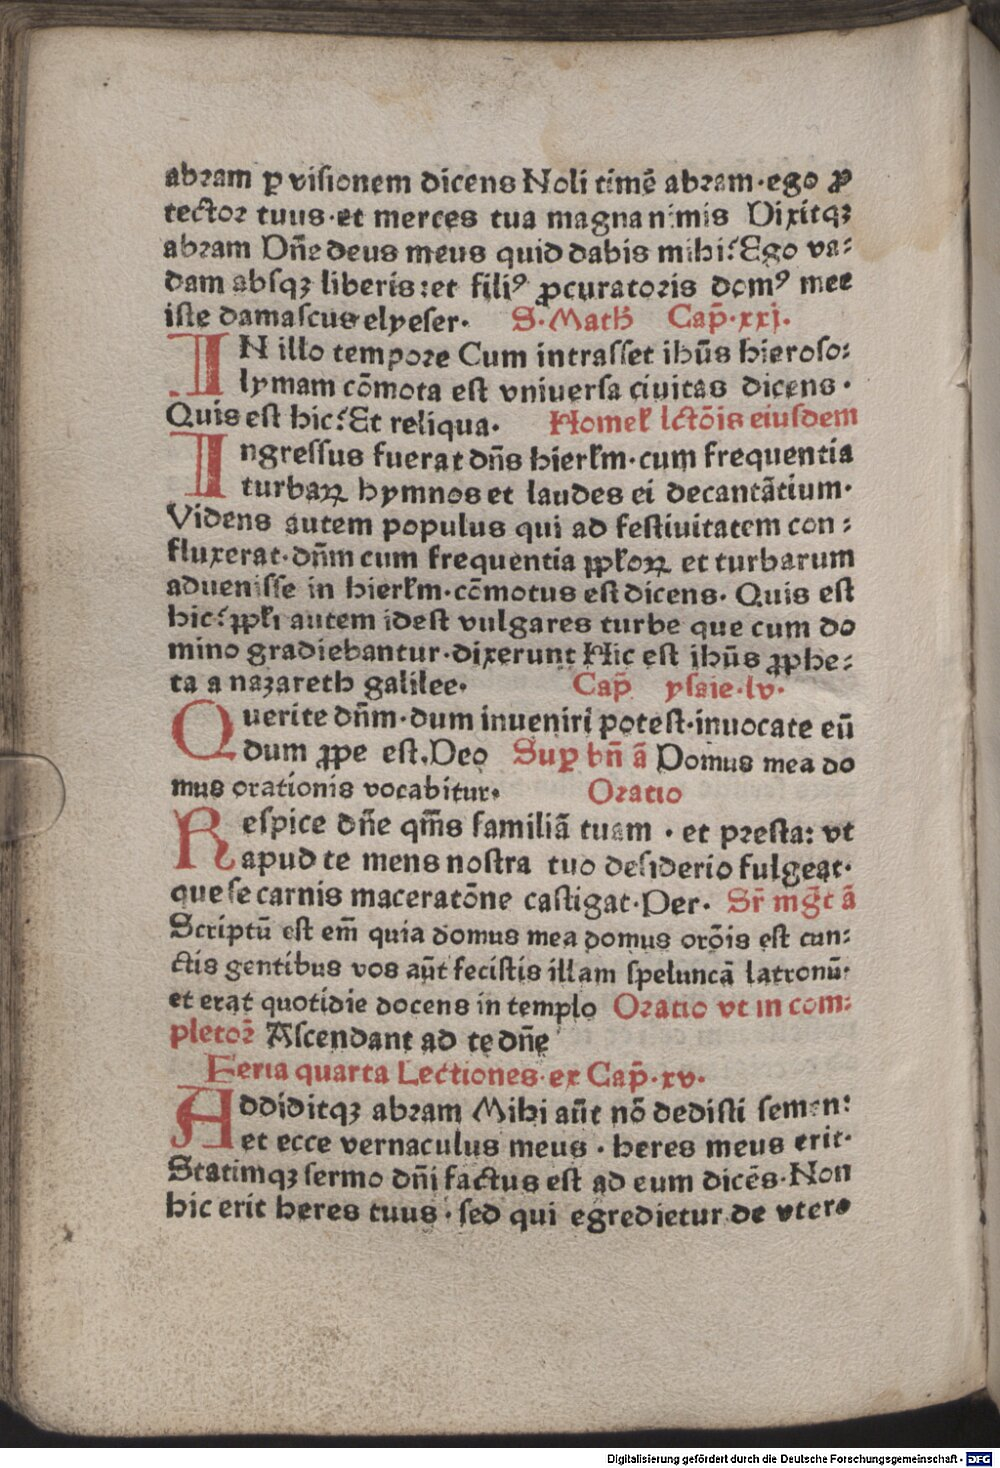 abꝛam ꝑ visionem dicens Noli timē abꝛam·ego ꝓ
tectoꝛ tuus·et merces tua magna nimis Dixitqꝫ
abꝛam Dn̄e deus meus quid dabis mihi? Ego va⸗
dam absqꝫ liberis:et filiꝰ ꝓcuratoꝛis domꝰ mee
iste damascus elyeser· S·Math̄ Cap̄·xxj·
IN illo tempoꝛe Cum intrasset ihūs hieroso⸗
lymam cōmota est vniuersa ciuitas dicens·
Quis est hic? Et reliqua· Homeł lctōis eiusdem
Ingressus fuerat dn̄s hierłm·cum frequentia
turbaꝝ hymnos et laudes ei decantātium·
Videns autem populus qui ad festiuitatem con⸗
fluxerat·dn̄m cum frequentia ꝓpłoꝝ et turbarum
aduenisse in hierłm·cōmotus est dicens· Quis est
hic? ꝓpłi autem idest vulgares turbe que cum do
mino gradiebantur·dixerunt Hic est ihūs ꝓphe⸗
ta a nazareth galilee· Cap̄ ysaie·lv·
Querite dn̄m·dum inueniri potest·inuocate eū
dum ꝓpe est.Deo Suꝑ bn̄ ā Domus mea do
mus orationis vocabitur· Oꝛatio
Respice dn̄e qm̄s familiā tuam · et pꝛesta: vt
apud te mens nostra tuo desiderio fulgeat·
que se carnis maceratōne castigat·Per· Sr̄ mḡt ā
Scriptū est em̄ quia domus mea domus orōis est cun⸗
ctis gentibus vos aūt fecistis illam speluncā latronū·
et erat quotidie docens in templo Oꝛatio vt in com⸗
pletoꝛ̄ Ascendant ad te dn̄e
Feria quarta Lectiones·ex Cap̄·xv·
Addiditqꝫ abꝛam Mihi aūt nō dedisti semen:
et ecce vernaculus meus · heres meus erit·
Statimqꝫ sermo dn̄i factus est ad eum dicēs·Non
hic erit heres tuus · sed qui egredietur de vtero
Digitalisierung gefördert durch die Deutsche Forschungsgemeinschaft - DFG